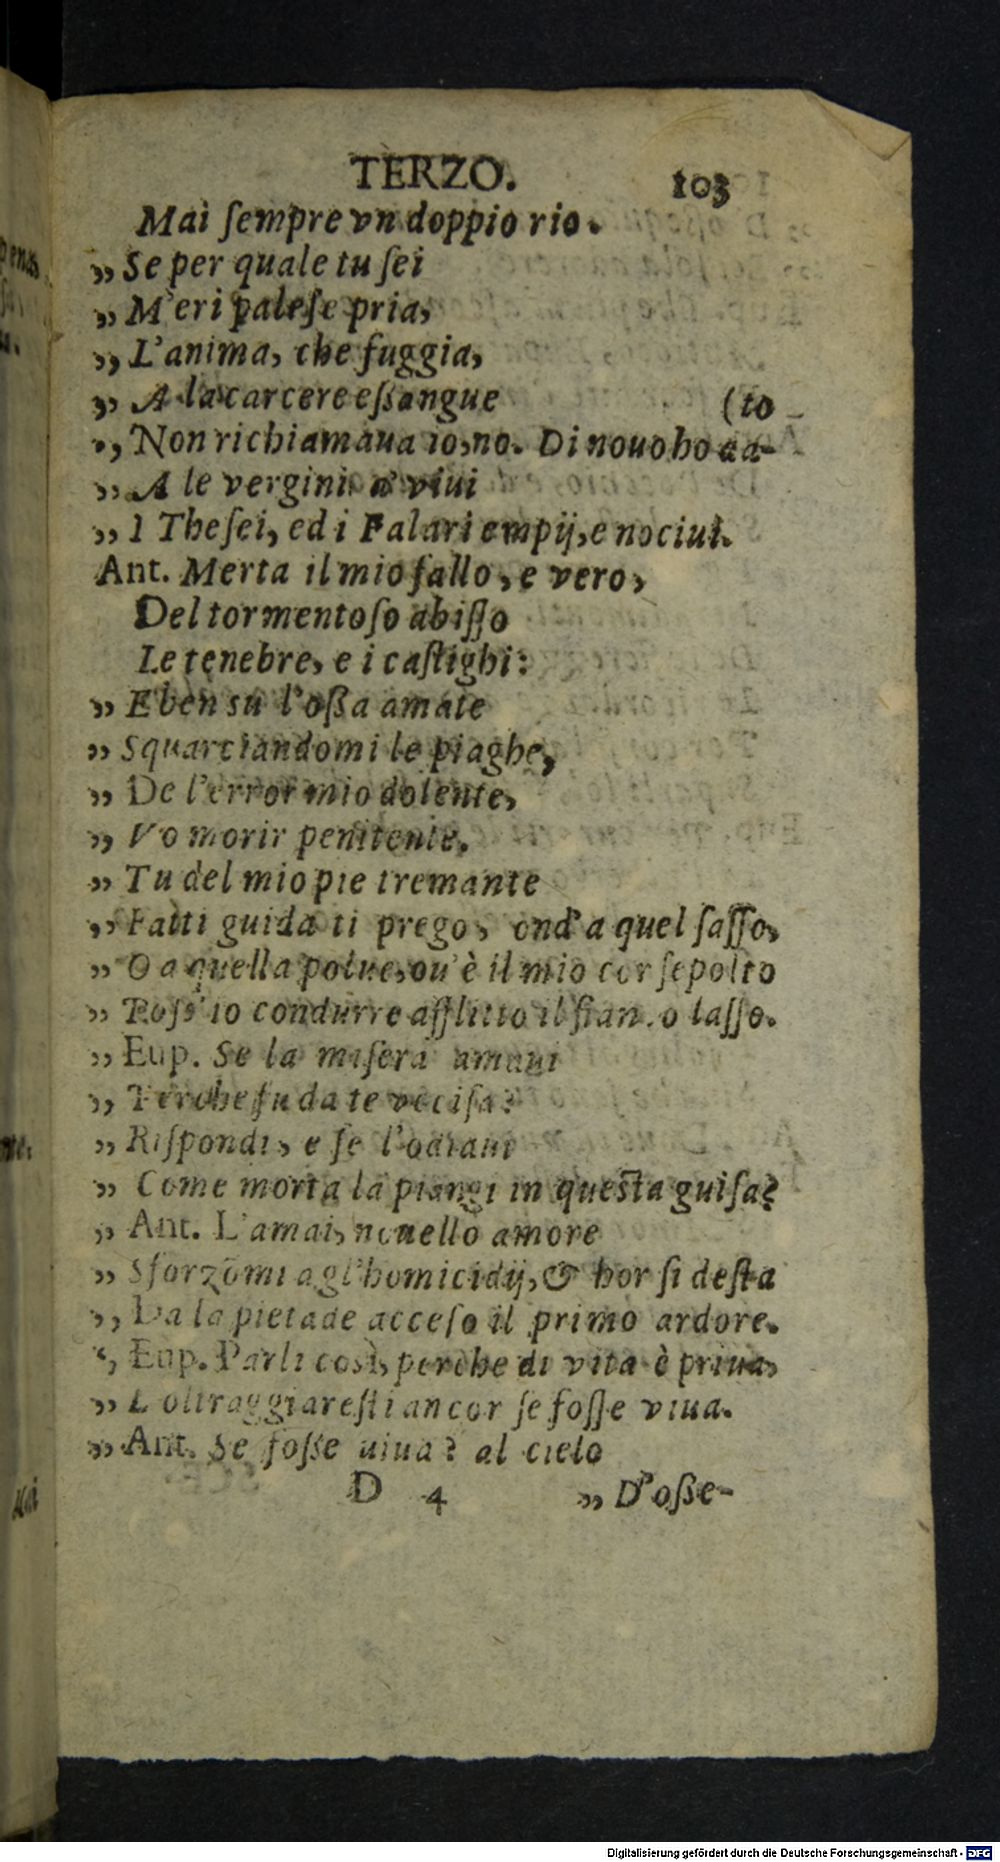 TERZO. 103
Mai ſempre vn doppio rio.
„ Se per quale tu ſei
„ M'eri paleſe pria,
„ L'anima, che fuggia,
„ A la carcere eſsangue (to
„ Non richiamaua io, no. Di nouo ho aa-
„ A le vergini a' viui
„ I Theſei, ed i Falari empij, e nociui.
Ant. Merta il mio fallo, e vero,
Del tormentoſo abiſſo
Le tenebre, e i caſtighi:
„ E ben su l'oßa amate
„ Squarciandomi le piaghe,
„ De l'error mio dolente,
„ Vo morir penitente.
„ Tu del mio pie tremante
„ Fatti guida ti prego, ond' a quel ſaſſo,
„ O a quella polue, ou' è il mio cor ſepolto
„ Poſs' io condurre afflitto il fian.o laſſo.
„ Eup. Se la miſera amaui
„ Perche fu da te vcciſa?
„ Riſpondi, e ſe l'odiaui
„ Come morta la piangi in queſta guiſa?
„ Ant. L'amai, nouello amore
„ Sforzomi agl'homicidij, & hor ſi deſta
„ Da la pietade acceſo il primo ardore.
„ Eup. Parli così, perche di vita è priua,
„ L'oltraggiareſti ancor ſe foſſe viua.
„ Ant. Se foſſe uiua? al cielo
D 4 „ D'oße-
Digitalisierung gefördert durch die Deutsche Forschungsgemeinschaft - DFG